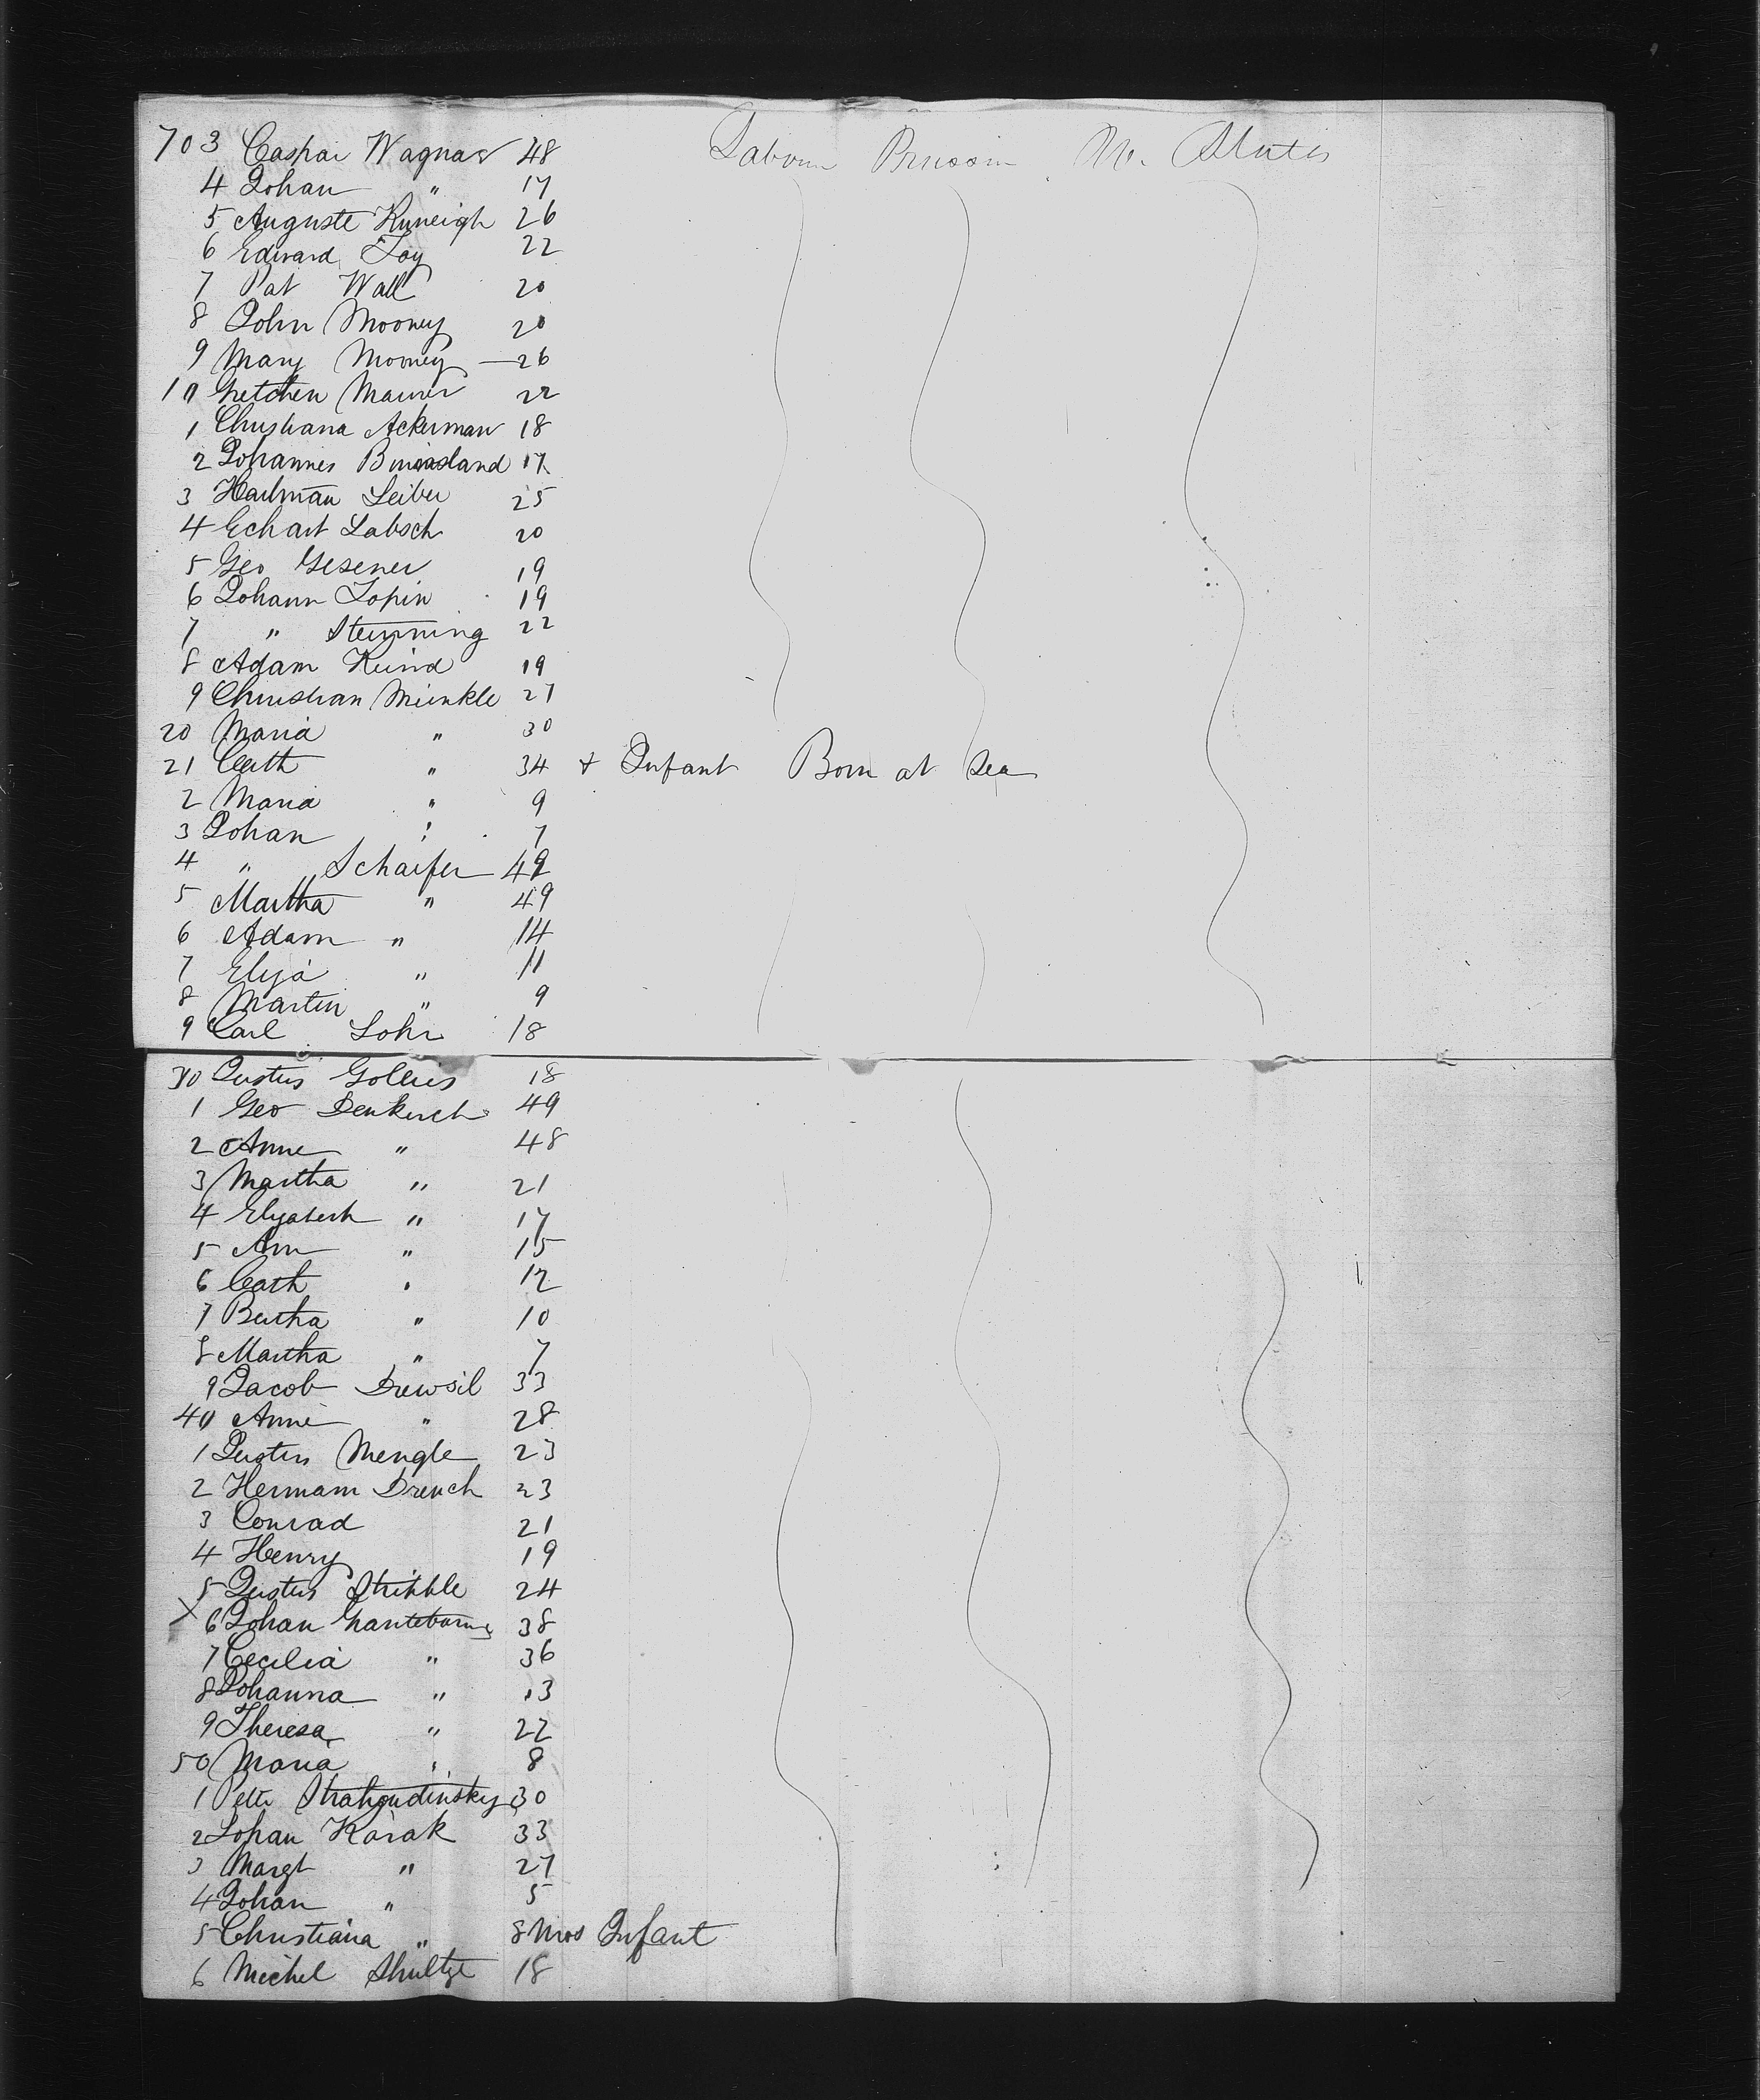 703 Caspar Wagnar 48 Labour Prussia Un. States
4 Johan " 17
5 Auguste 26
6 Edward Foy 22
7 Pat Wall 20
8 John Mooney 20
9 Mary Mooney — 26
10 Gretchen Maurer 22
1 Christiana Ackerman 18
2 Johannes 17
3 Hartman Leiber 25
4 Echart Labsch 20
5 Geo Gesener 19
6 Johann Topin 19
7 " Steinning 22
8 Adam Keind 19
9 Christian Meinkle 27
20 Maria " 30
21 Cath " 34 + Infant Born at Sea
2 Maria " 9
3 Johan " 7
4 " Schaefer 49
5 Martha " 49
6 Adam " 14
7 Eliza " 11
8 Martin " 9
9 Carl Lohr 18
30 Justus Golles 18
1 Geo Denkirch 49
2 Anne " 48
3 Martha " 21
4 Elizabeth " 17
5 Ann " 15
6 Cath " 12
7 Bertha " 10
8 Martha " 7
9 Jacob Drewsil 33
40 Anne " 28
1 Justus Mengle 23
2 Hermann Drench 23
3 Conrad 21
4 Henry 19
5 Justus Stribble 24
X 6 Johan 38
7 Cecilia " 36
8 Johanna " 13
9 Theresa " 22
50 Maria " 8
1 Peter 30
2 Johan Karak 33
3 Margt " 27
4 Johan " 5
5 Christiana " 8 Mos Infant
6 Michel Shultze 18